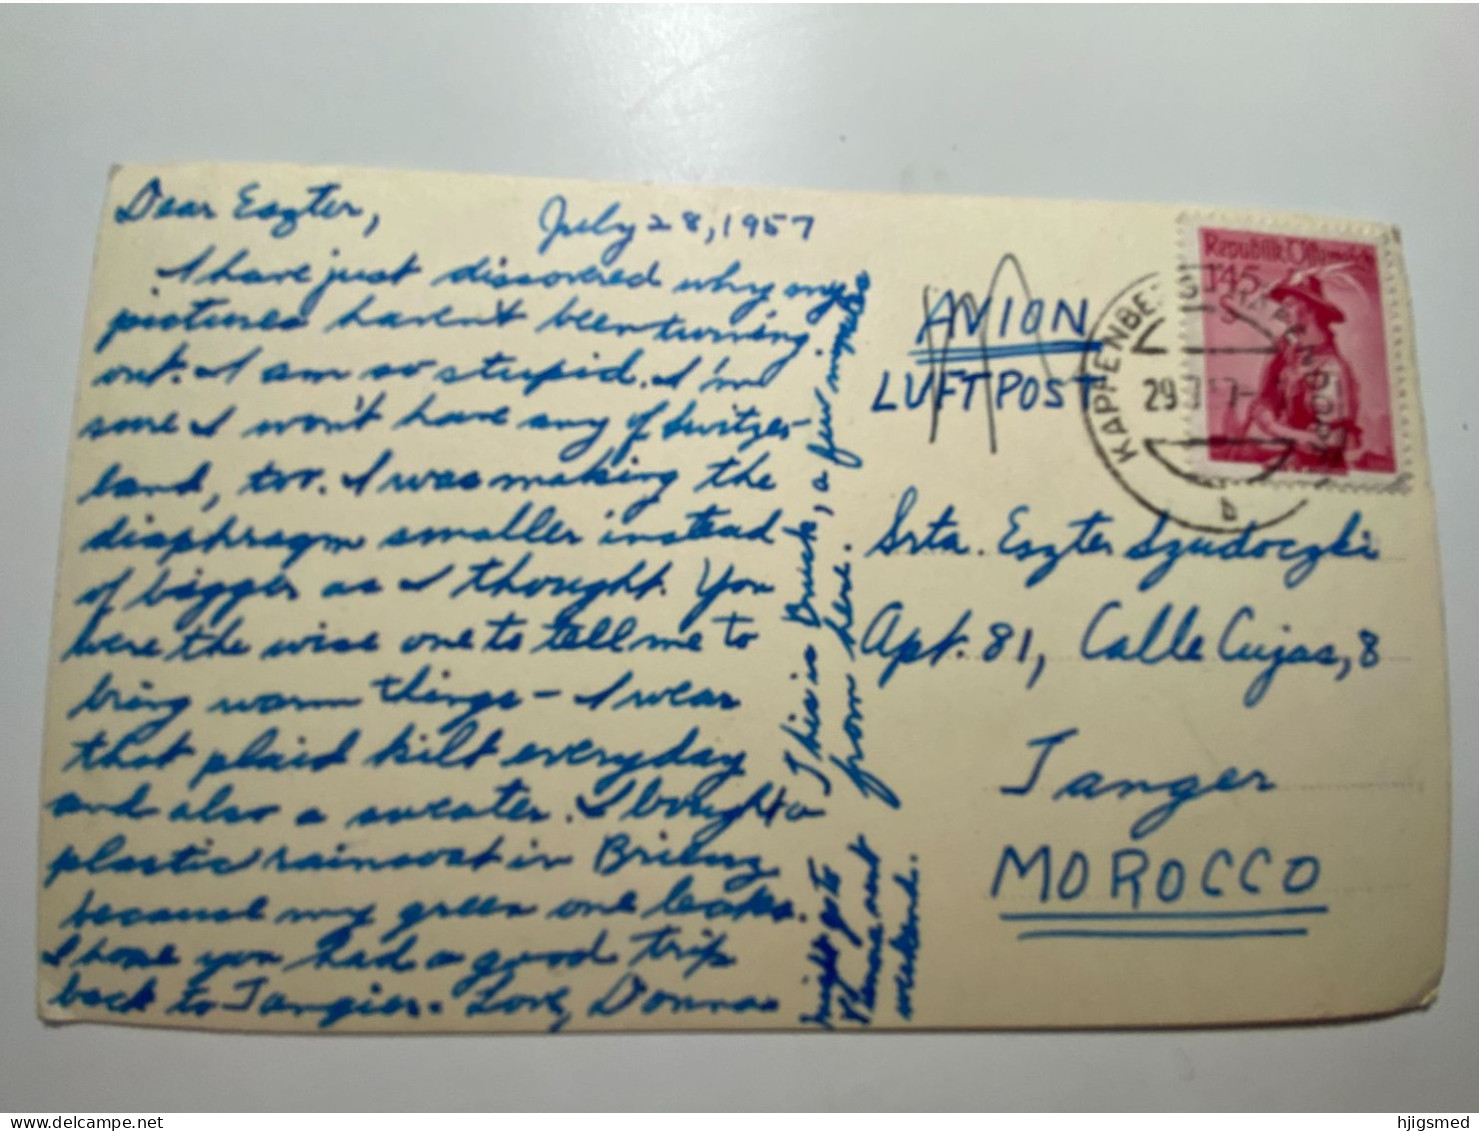 Dear Eszter,
July 28, 1957
I have just discovered why my
pictures haven't been turning
out. I am so stupid. I'm
sure I won't have any of Switzer-
land, too. I was making the
diaphragm smaller instead
of bigger as I thought. You
were the wise one to tell me to
bring warm things – I wear
that plaid kilt everyday
and also a sweater. I bought a
plastic raincoat in Brienz
because my green one leaks.
I hope you had a good trip
back to Tangier. Love, Donna
This is Bruck, a few miles
from here.
might go to
Vienna next
weekend.
AVION
LUFTPOST
Republik Österreich
1'45
S
KAPFENBERG
29
57
b
Srta. Eszter Szudoczki
Apt. 81, Calle Cujas, 8
Tanger
MOROCCO
hjigsmed